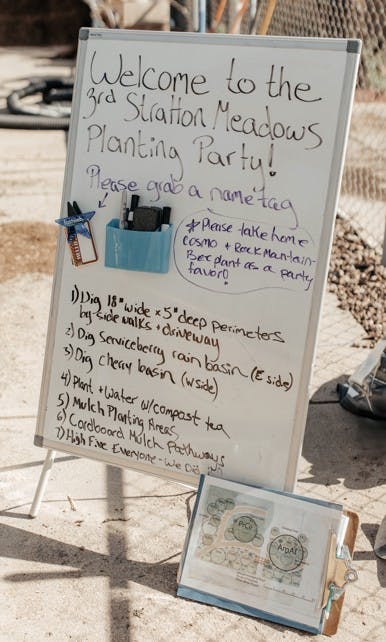 Welcome to the
3rd Stratton Meadows
Planting Party!
Please grab a name tag
* Please take home
cosmo + Rock Mountain-
Bee plant as a party
favor!
1) Dig 18" wide x 5" deep perimeters
by side walks + driveway
2) Dig Serviceberry rain basin (E side)
3) Dig cherry basin (W side)
4) Plant + Water w/compost tea
5) Mulch Planting Areas
6) Cardboard Mulch Pathways
7) High Five Everyone - We Did